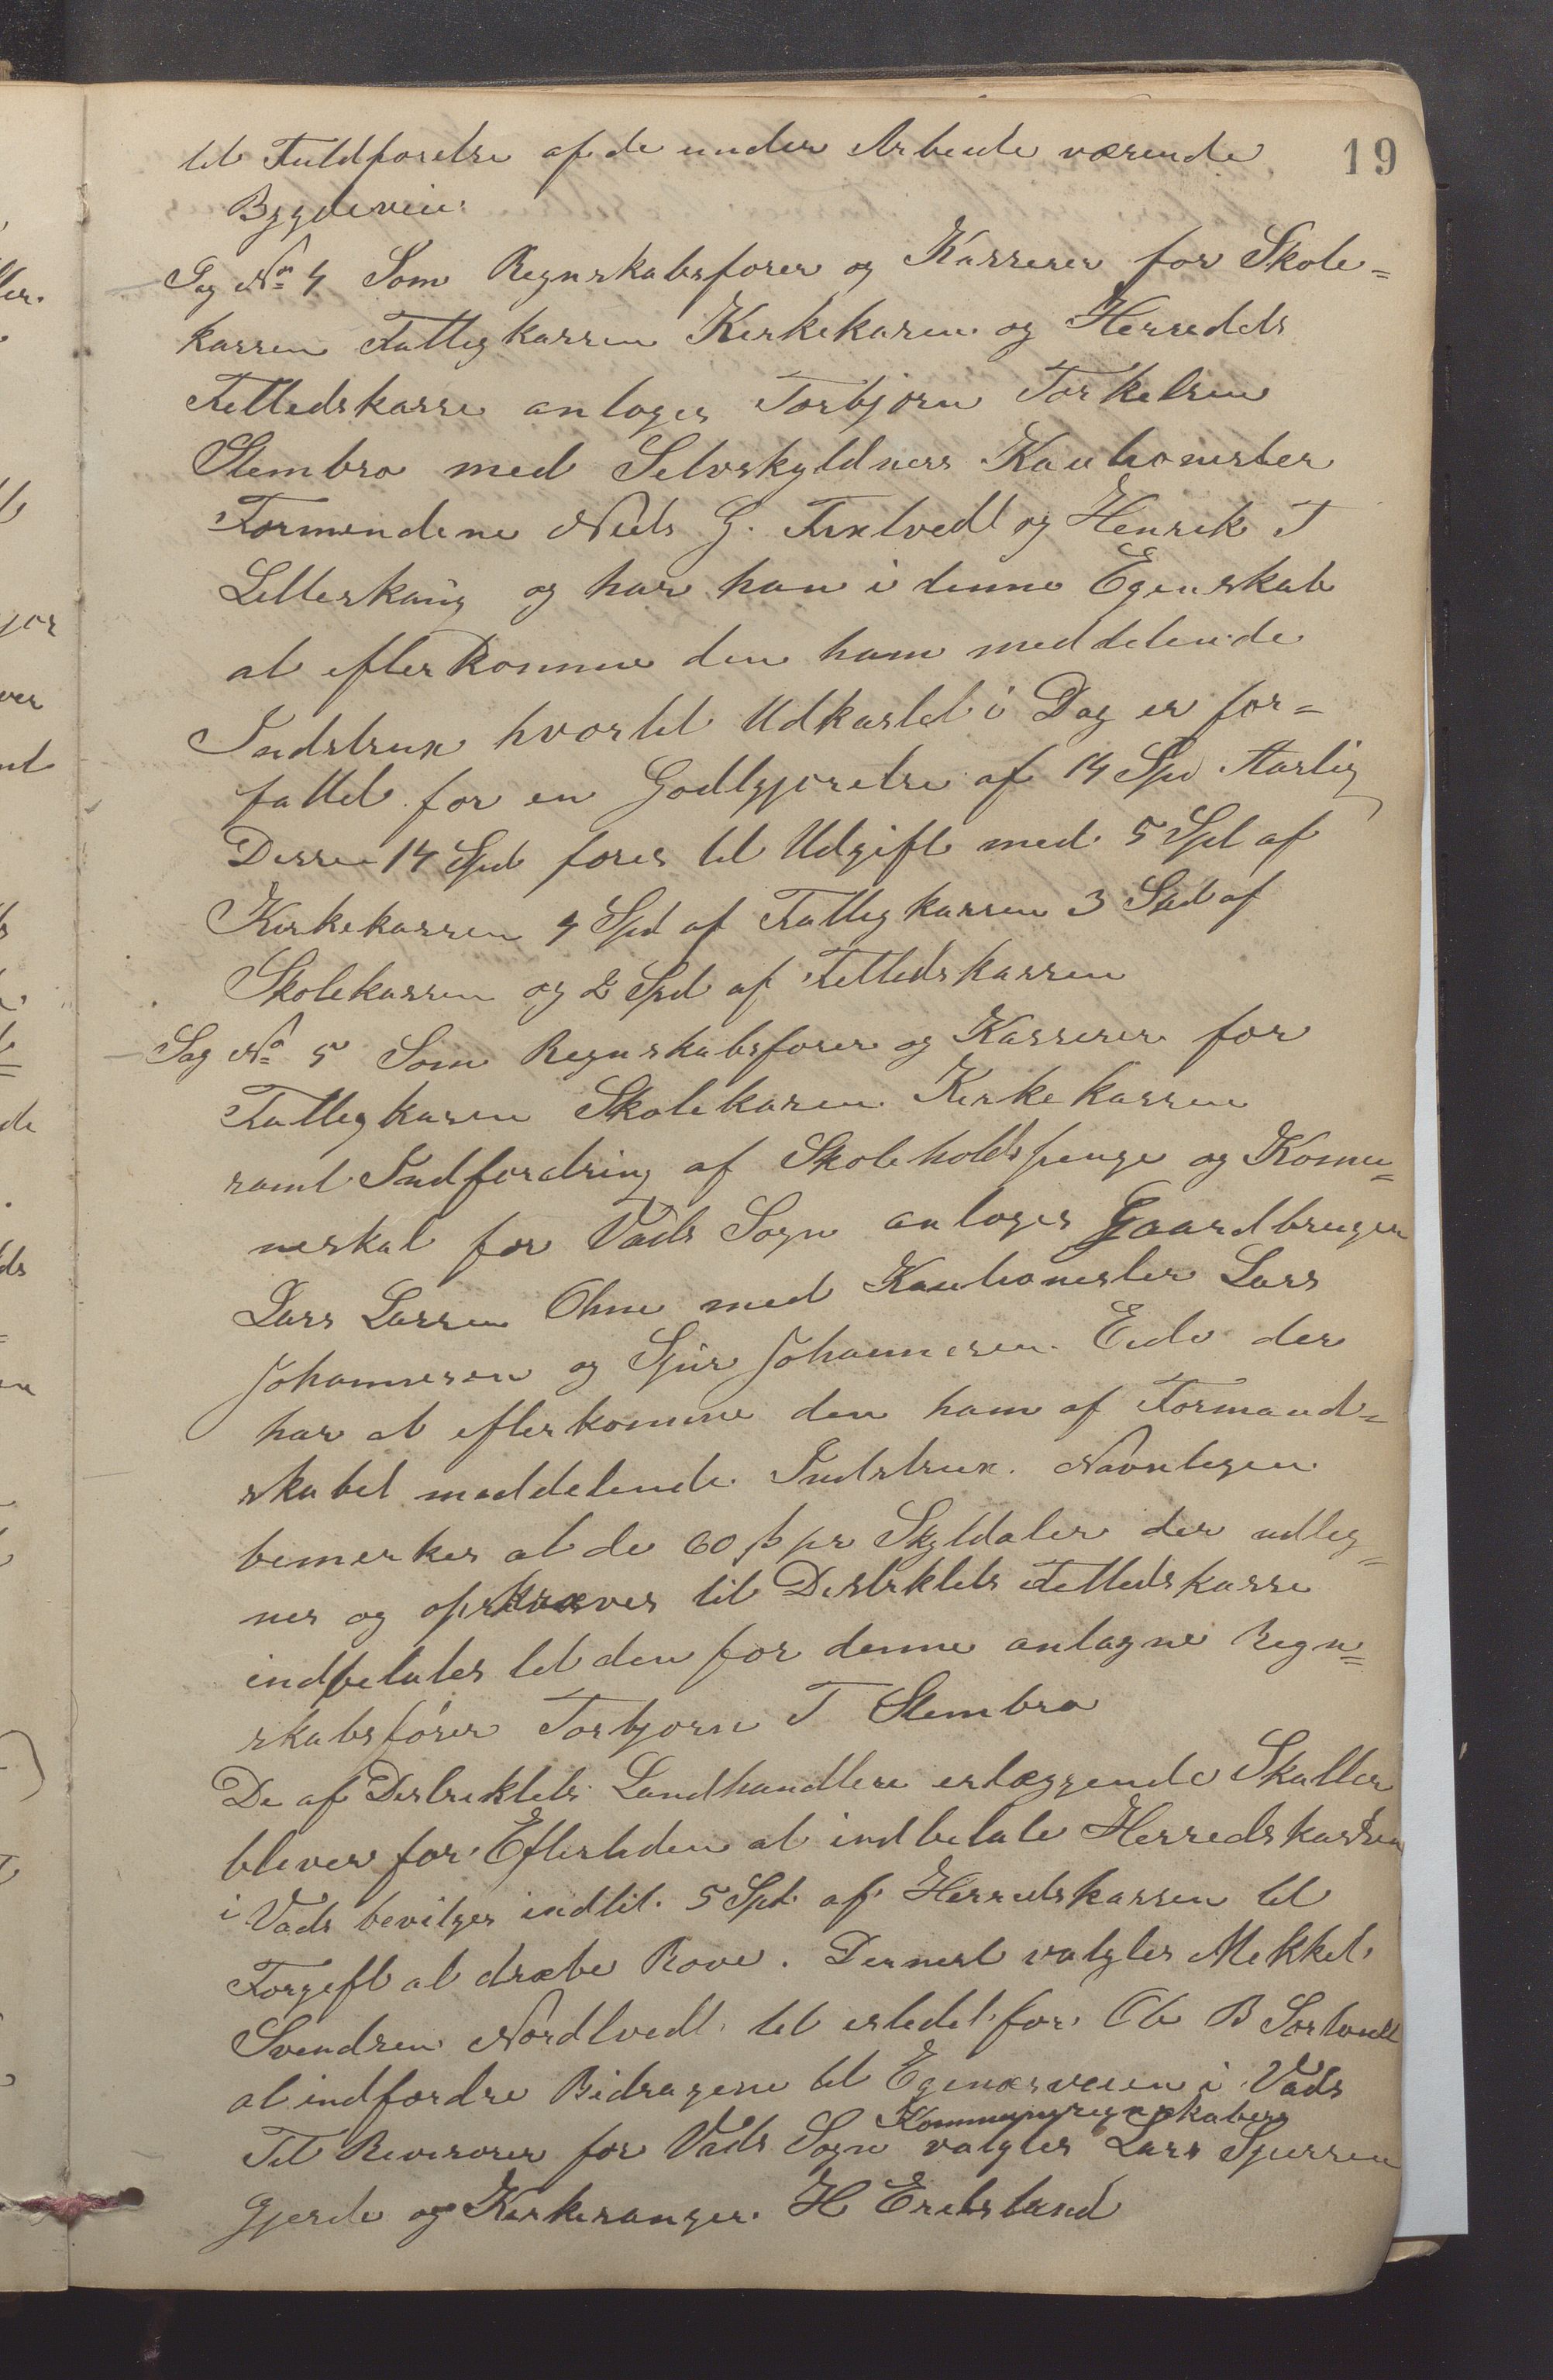 19
til Fuldførelse af de under Arbeide værende
Bygdeveie.
Sag No 4 Som Regnskabsfører og Kasserer for Skole=
kassen Fattigkassen Kirkekassen og Herredets
Felledskasse antoges Torbjørn Torkelsen
Stembro med Selvskyldners Kautionister
Formændene Niels G. Tvetvedt og Henrik T
Lilleskoug og har han i denne Egenskab
at efterkomme den ham meddelende
Indstrux hvortil Udkastet i Dag er for=
fattet for en Godtgjørelse af 14 Spd Aarlig
Disse 14 Spd føres til Udgift med 5 Spd af
Kirkekassen 4 Spd af Fattigkassen 3 Spd af
Skolekassen og 2 Spd af Felledskassen
Sag No 5 Som Regnskabsfører og Kasserer for
Fattigkassen Skolekassen Kirkekassen
samt Indfordring af Skoleholdspenge og Komu=
neskat for Vads Sogn antoges Gaardbruger
Lars Larsen Ohm med Kautionister Lars
Johannesen og Sjur Johannesen Eide der
har at efterkomme den ham af Formand=
skabet meddelende Indstrux. Navnligen
bemerkes at de 60 ß pr Skyldaler der udlig=
nes og opkræves til Distriktets Felledskasse
indbetales til den for denne antagne Regn=
skabsfører Torbjørn T Stembro
De af Distriktets Landhandlere erlæggende Skatter
bliver for Eftertiden at indbetale Herredskassen
i Vads bevilges indtil 5 Spd af Herredskassen til
Forgift at dræbe Ræve. Dernest valgtes Mikkel
Svendsen Nordtvedt til istedet for Ole B Sortvedt
at indfordre Bidragene til Egenæsveien i Vads
Kommuneregnskabers
Til Revisorer for Vads Sogn valgtes Lars Sjursen
Gjerde og Kirkesanger H Eridsland